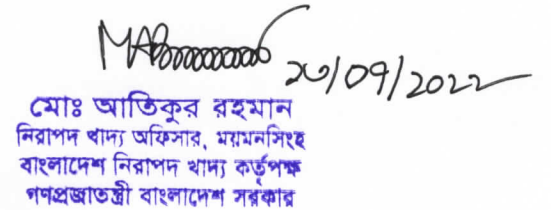 ২৬/০৭/২০২২
মোঃ আতিকুর রহমান
নিরাপদ খাদ্য অফিসার, ময়মনসিংহ
বাংলাদেশ নিরাপদ খাদ্য কর্তৃপক্ষ
গণপ্রজাতন্ত্রী বাংলাদেশ সরকার